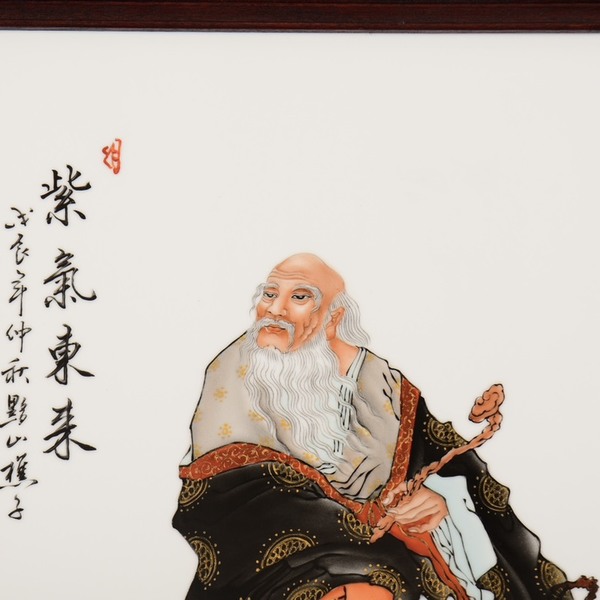 紫氣東来
戊辰年仲秋黟山樵子